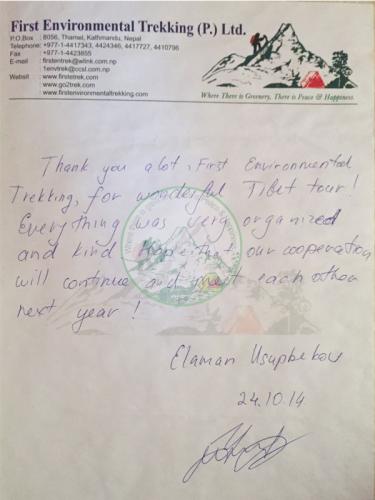 First Environmental Trekking (P.) Ltd.
P.O.Box : 8056, Thamel, Kathmandu, Nepal
Telephone: +977-1-4417343, 4424346, 4417727, 4410796
Fax : +977-1-4423855
E-mail : firstentrek@wlink.com.np
1envtrek@ccsl.com.np
Websit : www.firstetrek.com
www.go2trek.com
www.firstenvironmentaltrekking.com
Where There is Greenery, There is Peace & Happiness.
Thank you a lot, First Environmental
Trekking, for wonderful Tibet tour!
Everything was very organized
and kind. Hope that our cooperation
will continue and meet each other
next year!
Elaman
24.10.14